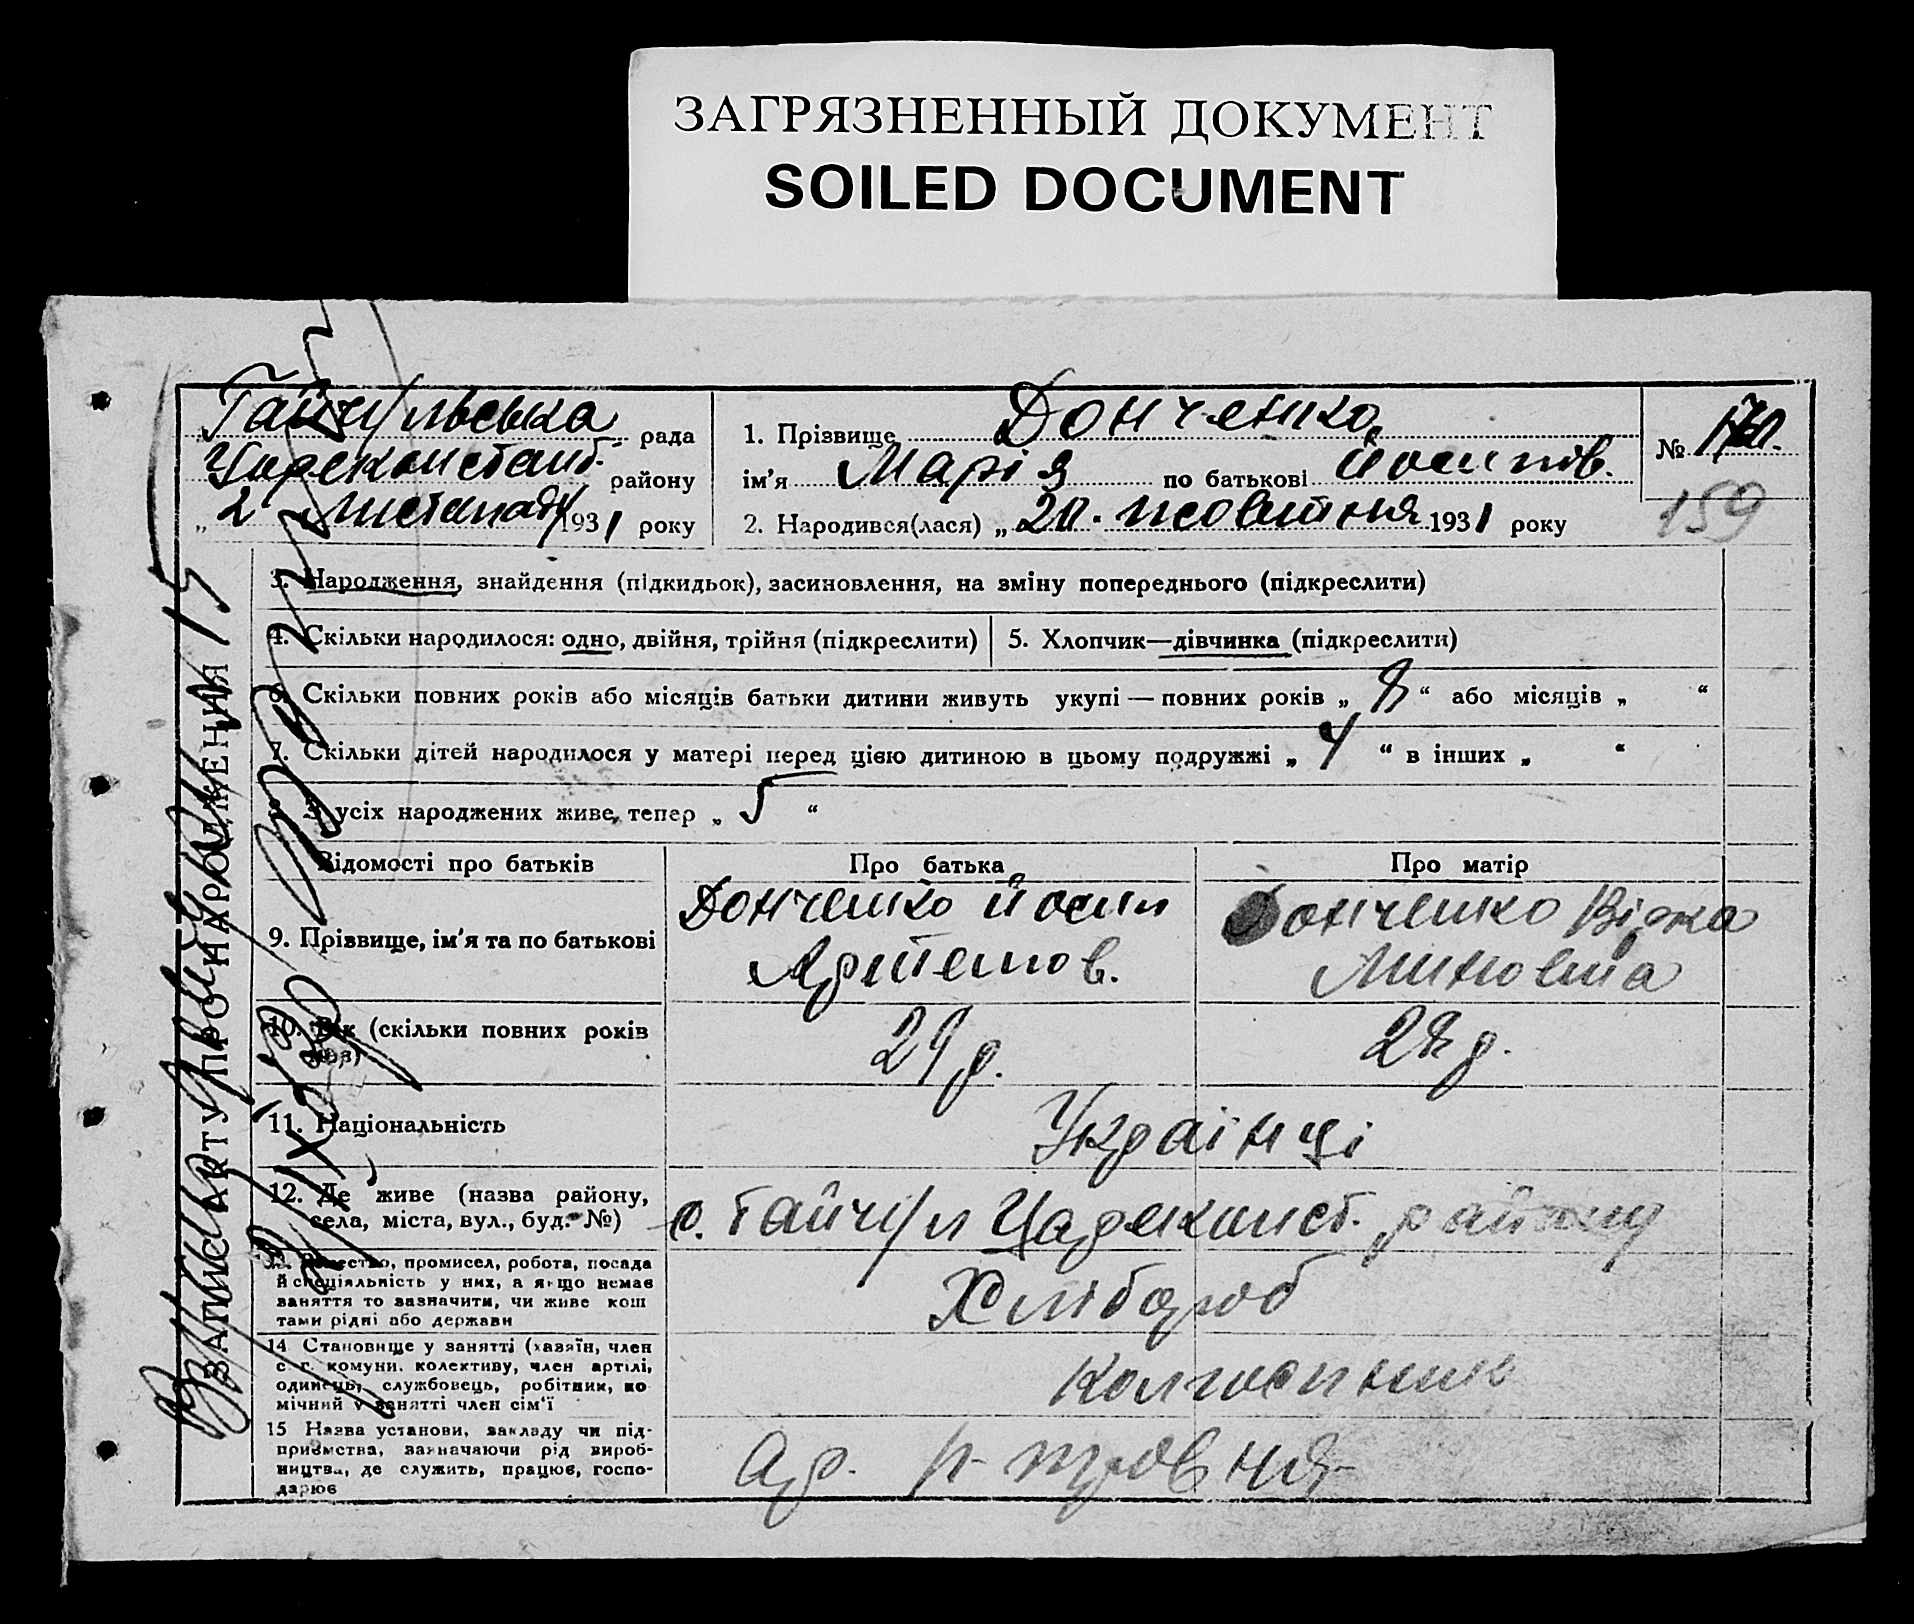 ЗАГРЯЗНЕННЫЙ ДОКУМЕНТ
SOILED DOCUMENT
Гайчульська рада
Цареконстант. району
„ 2 листопаду 1931 року
1. Прізвище Донченко
ім'я Марія по батькові Йосипів.
2. Народився(лася) „ 20. жовтня 1931 року
№
159
ЗАПИС АКТУ ПРО НАРОДЖЕННЯ
3. Народження, знайдення (підкидьок), засиновлення, на зміну попереднього (підкреслити)
4. Скільки народилося: одно, двійня, трійня (підкреслити)
5. Хлопчик—дівчинка (підкреслити)
6. Скільки повних років або місяців батьки дитини живуть укупі — повних років „ 8 “ або місяців „ “
7. Скільки дітей народилося у матері перед цією дитиною в цьому подружжі „ 4 “ в інших „ “
8. З усіх народжених живе, тепер „ 5 “
Відомості про батьків
Про батька
Про матір
9. Прізвище, ім'я та по батькові
Донченко Йосип
Артемов.
Донченко Вірка
Миновна
10. Вік (скільки повних років
29 р.
28 р.
11. Національність
Українці
12. Де живе (назва району,
села, міста, вул., буд. №)
с. Гайчул Цареконст. району
13. промисел, робота, посада
й спеціяльність у них, а якщо немає
заняття то зазначити, чи живе кош
тами рідні або держави
Хлібороб
14 Становище у занятті (хазяїн, член
с.-г. комуни, колективу, член артілі,
одинець, службовець, робітник, по
мічний у занятті член сім'ї
колгоспник
15 Назва установи, закладу чи під-
приємства, зазначаючи рід вироб-
ництва, де служить, працює, госпо-
дарює
ар.